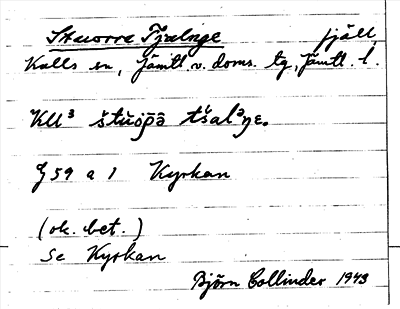 Stuorra Tjalnge fjäll
Kalls sn, Jämtl. v. doms. tg, Jämtl. l.
KU³ štùòp̄ā tšalᵊŋɛ.
G 59 a 1 Kyrkan
(ok. bet.)
Se Kyrkan
Björn Collinder 1943